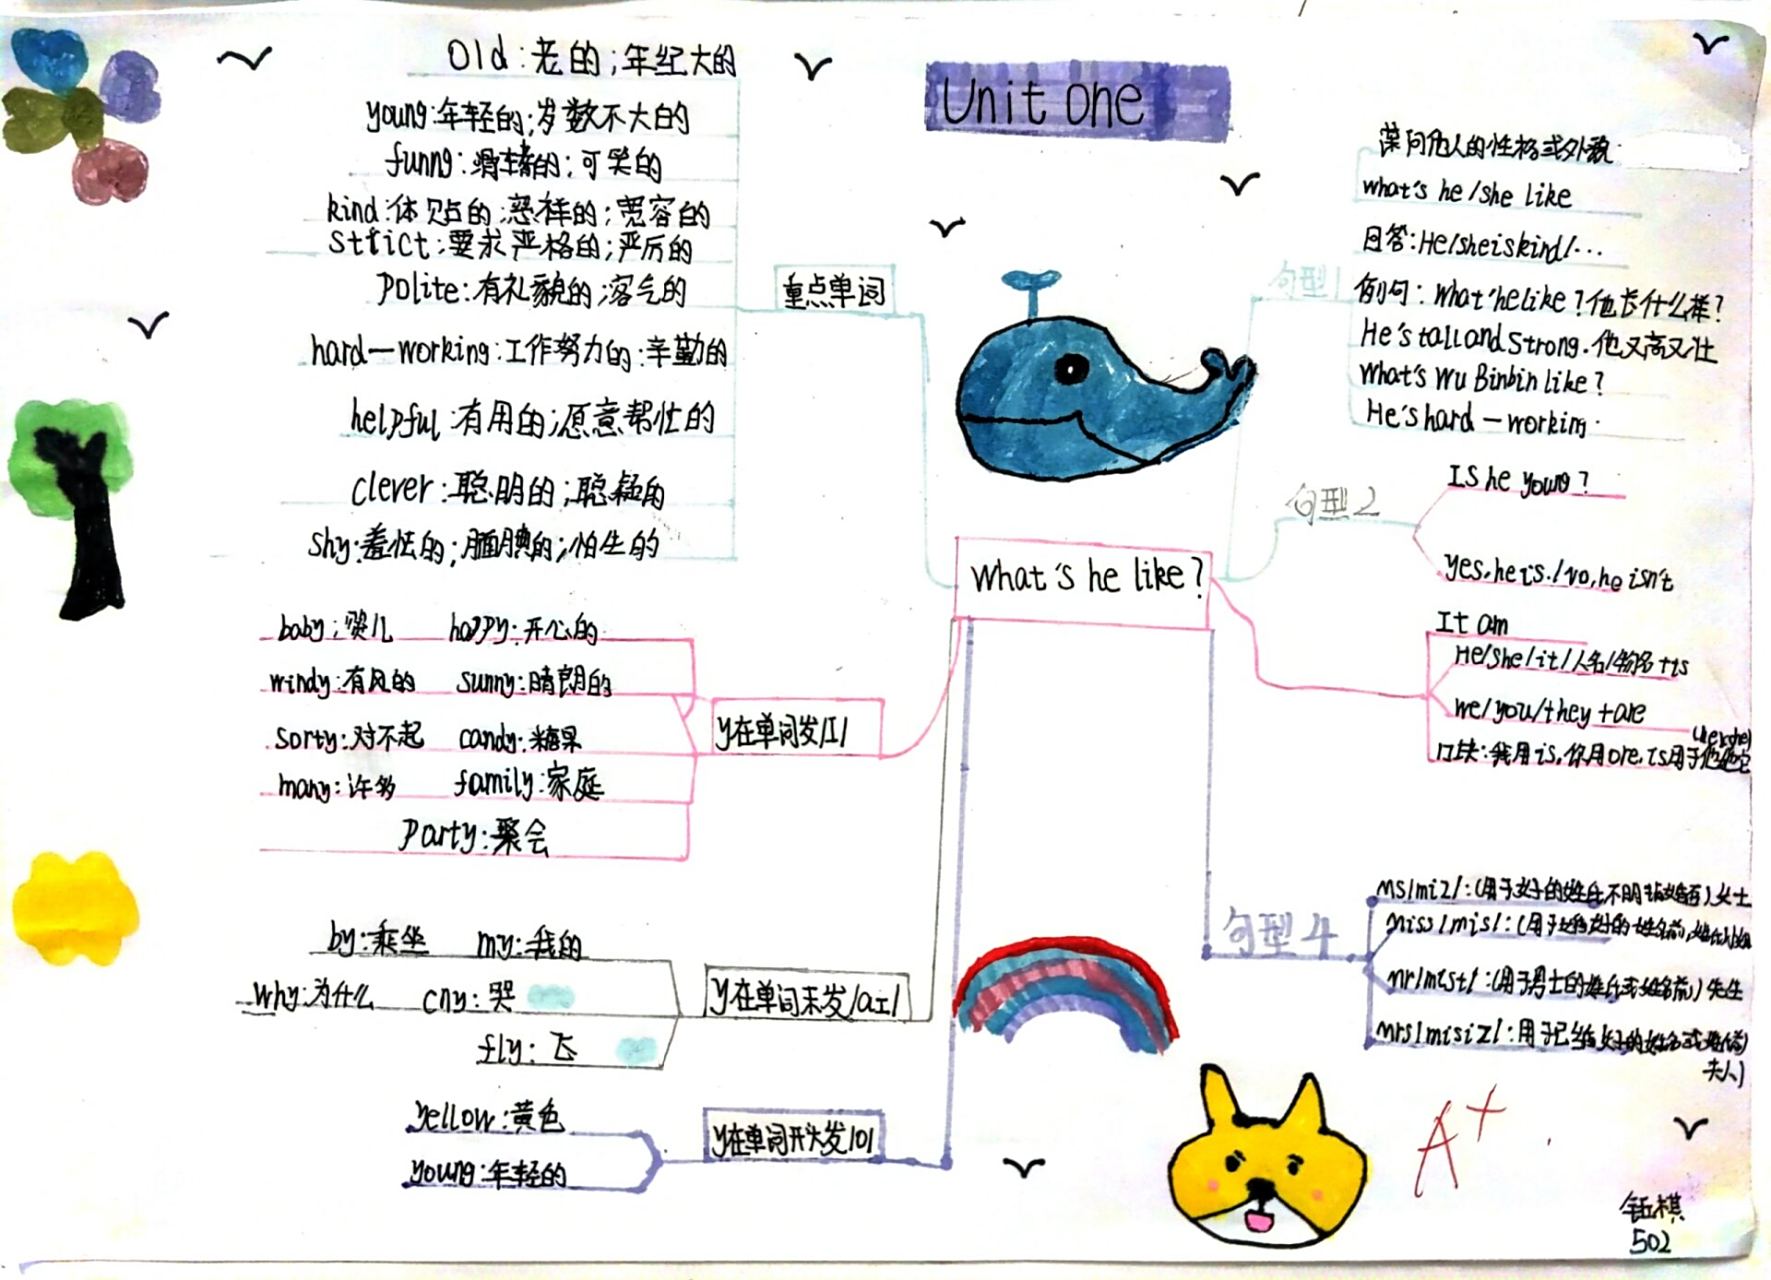 Unit one
what's he like?
重点单词
old:老的;年纪大的
young:年轻的;岁数不大的
funng:滑稽的;可笑的
kind:体贴的;慈祥的;宽容的
strict:要求严格的;严厉的
Polite:有礼貌的;客气的
hard—working:工作努力的:辛勤的
helpful:有用的;愿意帮忙的
clever:聪明的;聪颖的
shy:羞怯的;腼腆的;怕生的
y在单词发/I/
baby:婴儿 happy:开心的
windy:有风的 sunny:晴朗的
sorty:对不起 candy:糖果
many:许多 family:家庭
Party:聚会
y在单词末发/aI/
by:乘坐 my:我的
why:为什么 cny:哭
fly:飞
y在单词开头发
yellow:黄色
young:年轻的
句型1
问他人的性格或外貌
what's he/she like
回答:He/sheiskind/…
例句:What'helike?他长什么样?
He'stallandStrong.他又高又壮
What's Wu Binbin like?
He'shard—working.
句型2
IS he young?
yes,heis./no,he isn't
It am
He/she/it/人名/物名+is
we/you/they+are
口决:我用is,你用are,is用于他她它
句型4
ms/miz/:(用于女子的姓氏 女士
miss/mis/:(用于未婚女子的姓名前
mr/mist/:(用于男士的姓氏或姓名前)先生
mrs/misiz/:用于已婚女子的姓名或姓氏前
夫人)
A+
钰棋
502